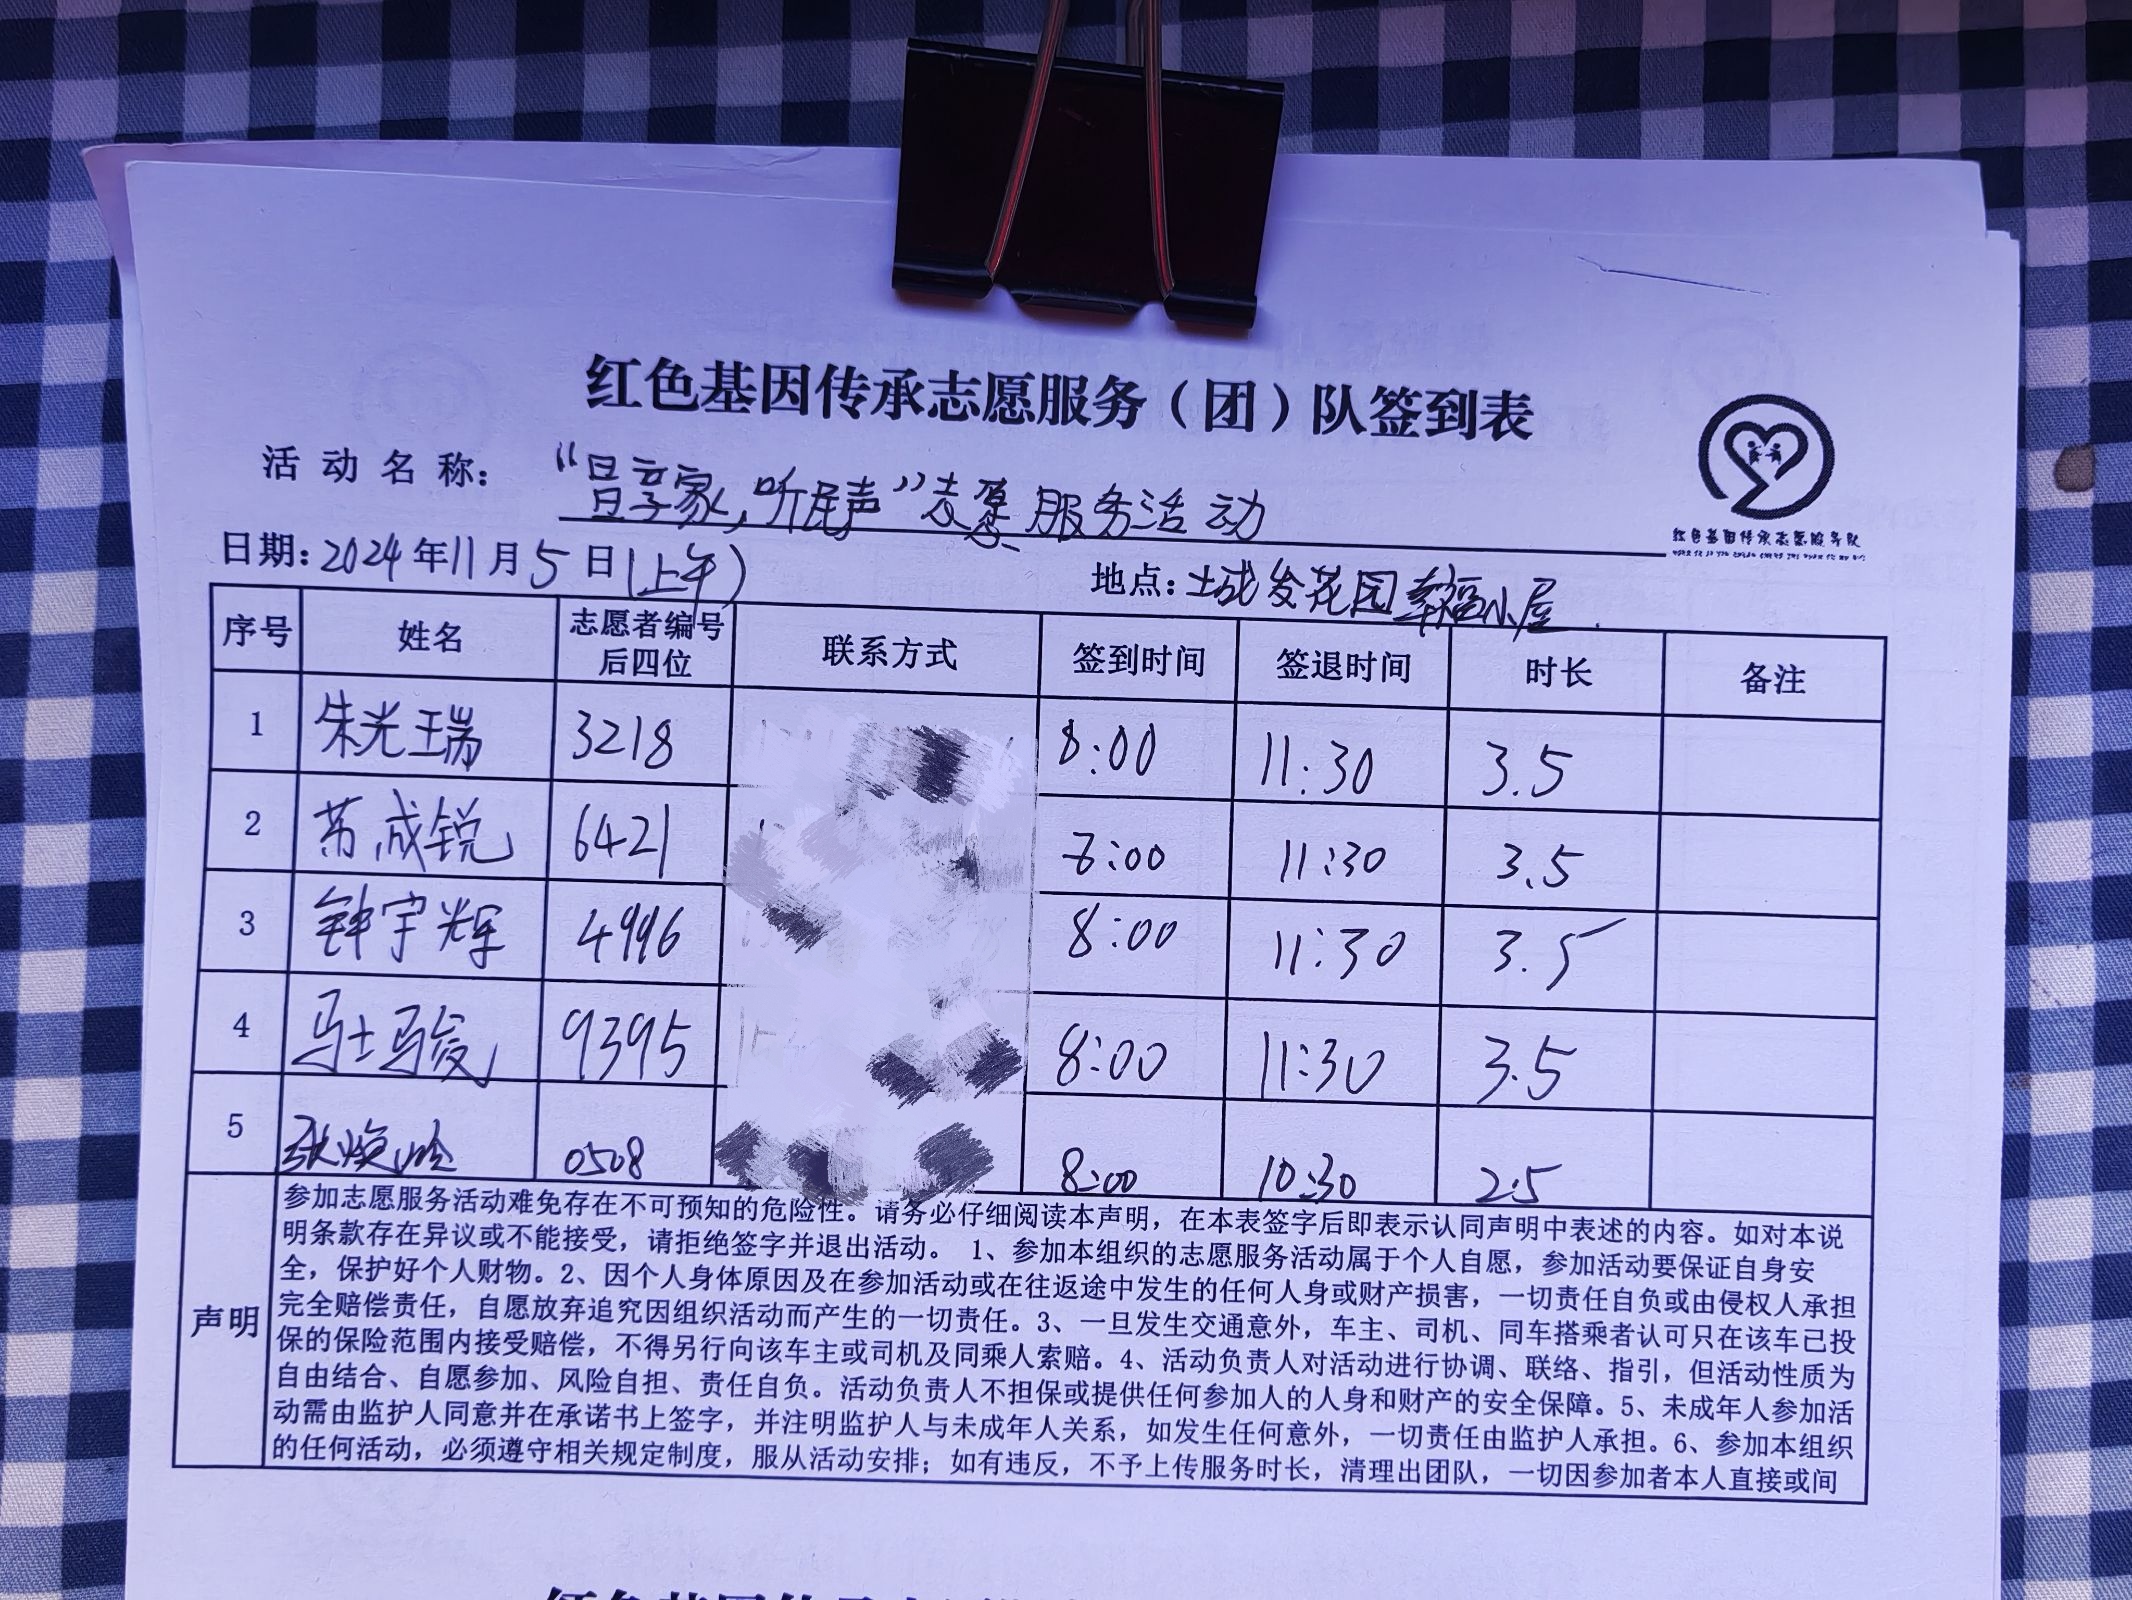 红色基因传承志愿服务（团）队签到表
活动名称：“昌享家，听民声”志愿服务活动
红色基因传承志愿服务队
日期：2024年11月5日（上午）
地点：土城发花园幸福小屋
序号 姓名 志愿者编号后四位 联系方式 签到时间 签退时间 时长 备注
1 朱光瑞 3218 8:00 11:30 3.5
2 成锐 6421 8:00 11:30 3.5
3 钟宇辉 4996 8:00 11:30 3.5
4 马士骏 9395 8:00 11:30 3.5
5 张焕 0508 8:00 10:30 2.5
声明
参加志愿服务活动难免存在不可预知的危险性。请务必仔细阅读本声明，在本表签字后即表示认同声明中表述的内容。如对本说
明条款存在异议或不能接受，请拒绝签字并退出活动。 1、参加本组织的志愿服务活动属于个人自愿，参加活动要保证自身安
全，保护好个人财物。2、因个人身体原因及在参加活动或在往返途中发生的任何人身或财产损害，一切责任自负或由侵权人承担
完全赔偿责任，自愿放弃追究因组织活动而产生的一切责任。3、一旦发生交通意外，车主、司机、同车搭乘者认可只在该车已投
保的保险范围内接受赔偿，不得另行向该车主或司机及同乘人索赔。4、活动负责人对活动进行协调、联络、指引，但活动性质为
自由结合、自愿参加、风险自担、责任自负。活动负责人不担保或提供任何参加人的人身和财产的安全保障。5、未成年人参加活
动需由监护人同意并在承诺书上签字，并注明监护人与未成年人关系，如发生任何意外，一切责任由监护人承担。6、参加本组织
的任何活动，必须遵守相关规定制度，服从活动安排；如有违反，不予上传服务时长，清理出团队，一切因参加者本人直接或间